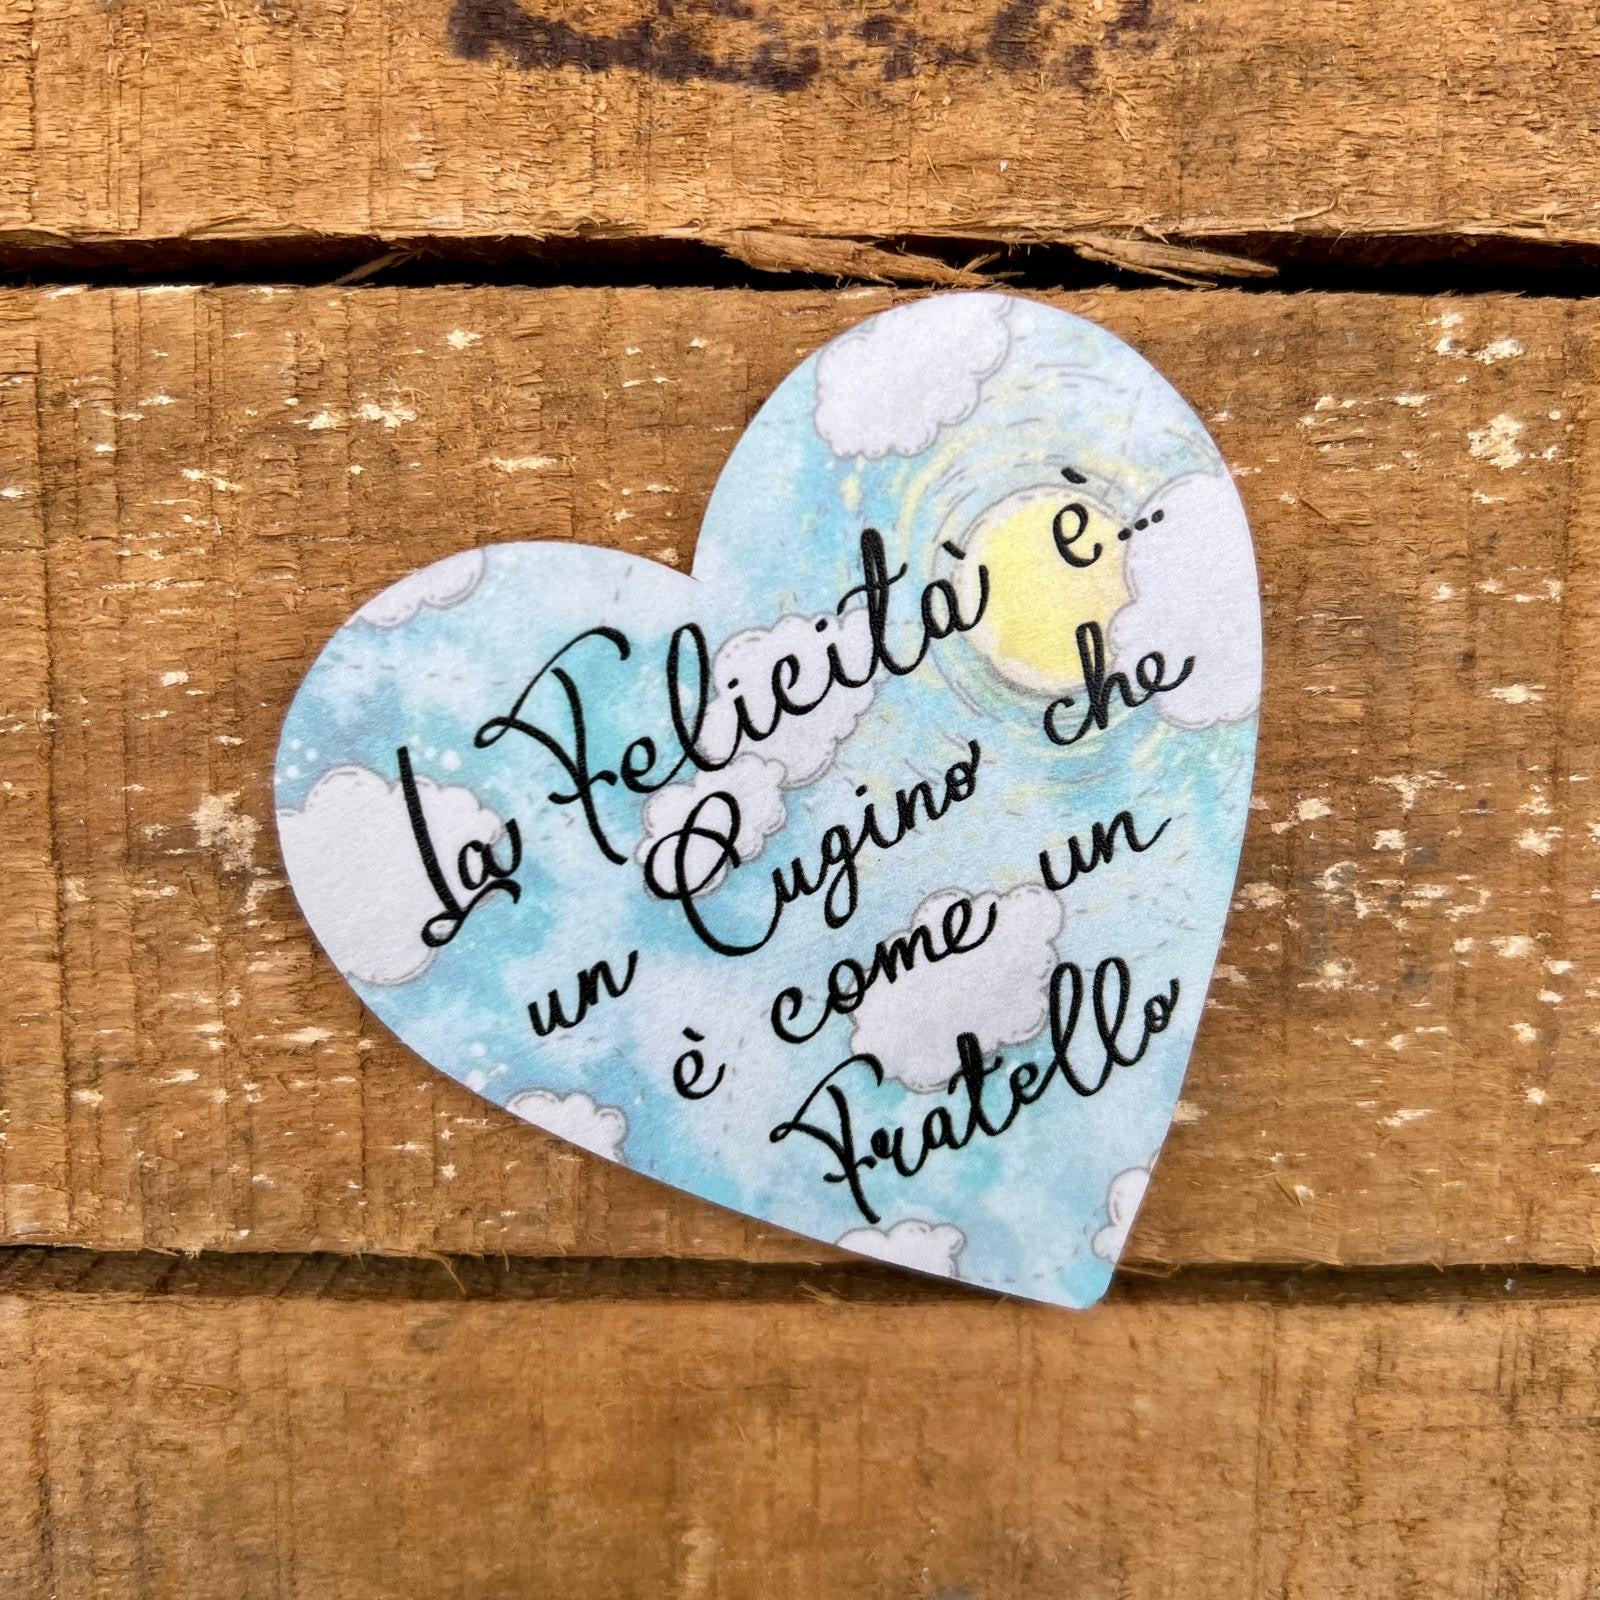 La Felicità è...
un Cugino che
è come un
Fratello